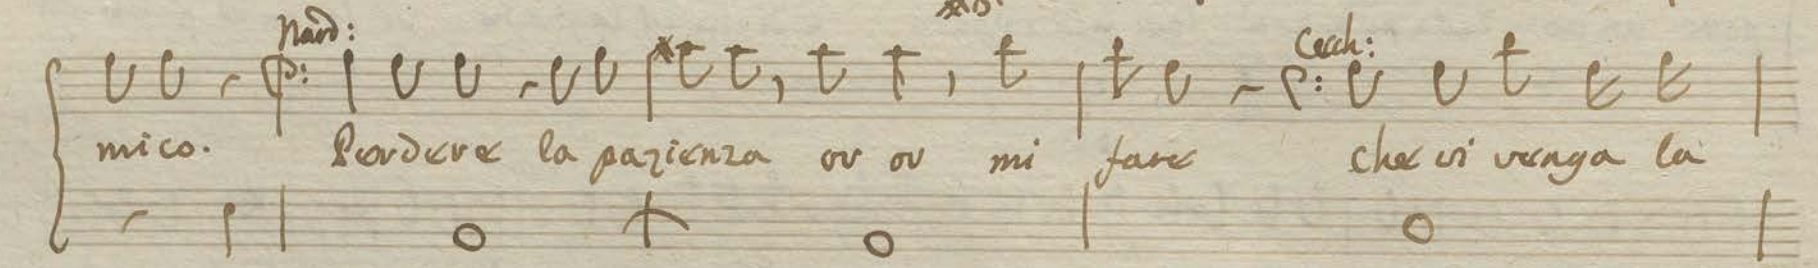 Nard: Cecch:
mico. Perdere la pazienza or or mi fare che vi venga la